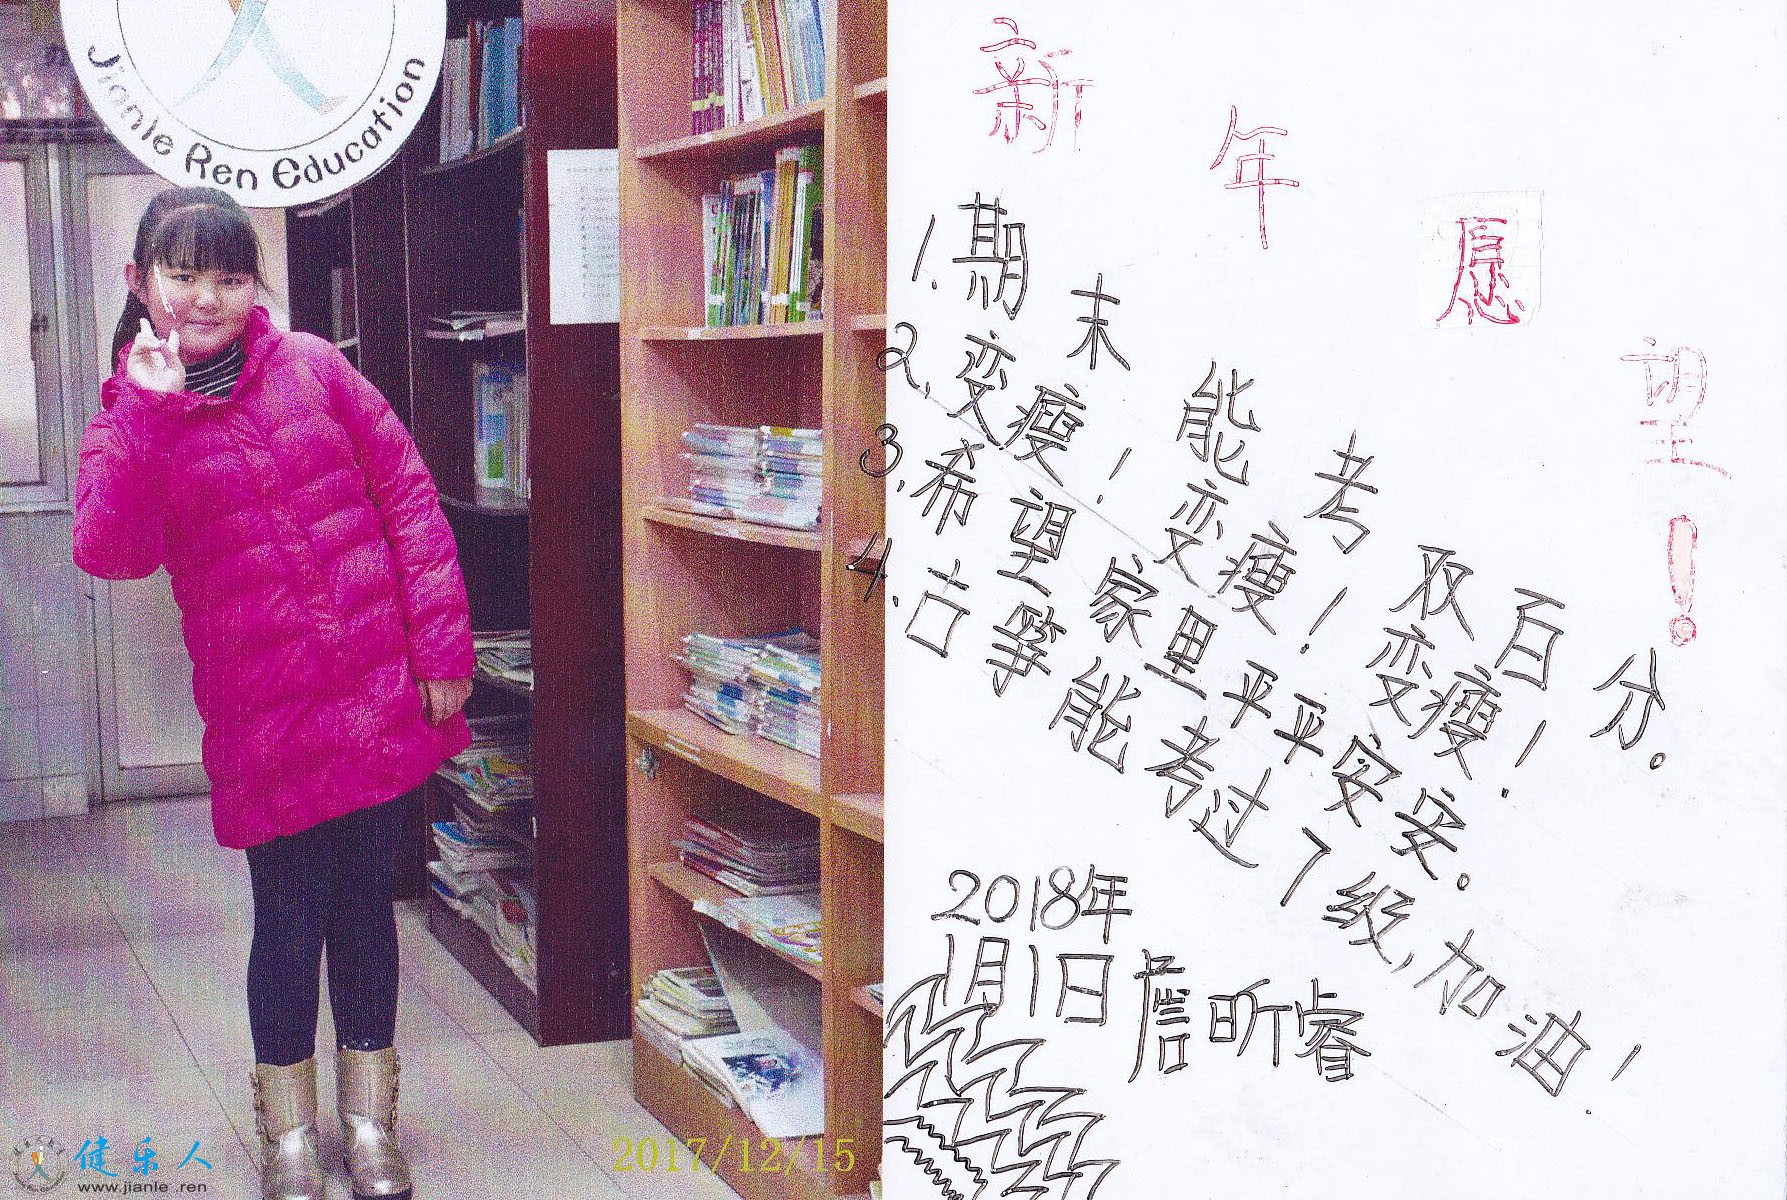 Jianle Ren Education
健乐人
www.jianle.ren
2017/12/15
新年愿望!
1.期末能考取百分。
2.变瘦!变瘦!变瘦!
3.希望家里平平安安。
4.古筝能考过7级,加油!
2018年
1月1日 詹昕睿